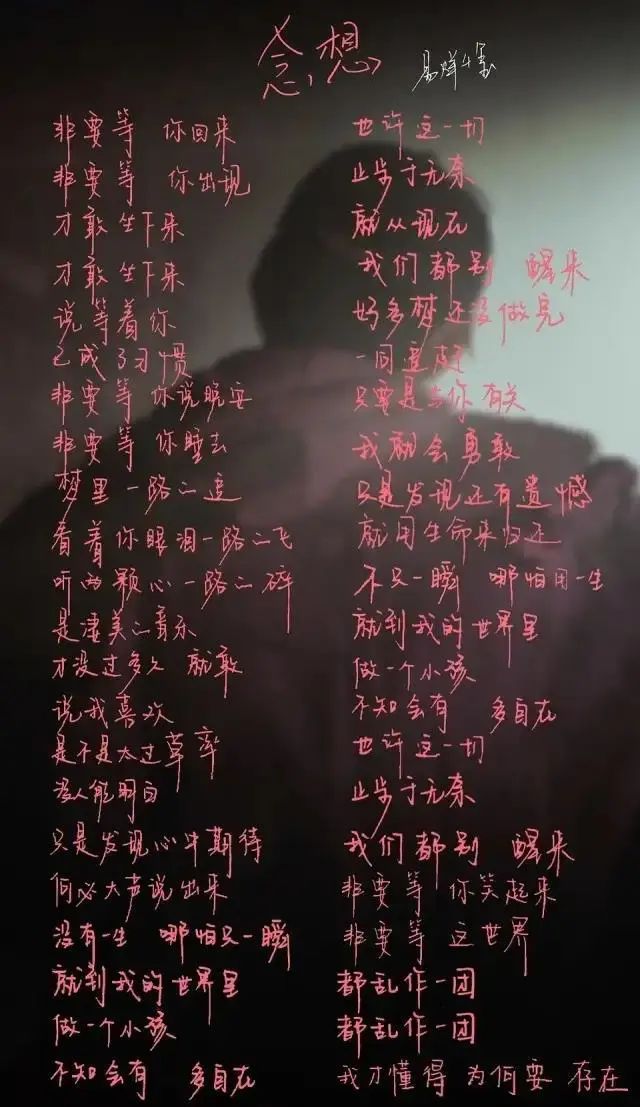 念想
易烊千玺
非要等 你回来
非要等 你出现
才敢坐下来
才敢坐下来
说等着你
已成了习惯
非要等 你说晚安
非要等 你睡去
梦里一路一追
看着你眼泪一路一飞
听两颗心一路一碎
是凄美的音乐
才没过多久 就敢
说我喜欢
是不是太过草率
没人能明白
只是发现心中期待
何必大声说出来
没有一生 哪怕只一瞬
就到我的世界里
做一个小孩
不知会有 多自在
也许这一切
止步于无奈
就从现在
我们都别 醒来
好多梦还没做完
一同追赶
只要是与你有关
我就会勇敢
只是发现还有遗憾
就用生命来归还
不只一瞬 哪怕用一生
就到我的世界里
做一个小孩
不知会有 多自在
也许这一切
止步于无奈
我们都别 醒来
非要等 你笑起来
非要等 这世界
都乱作一团
都乱作一团
我才懂得 为何要 存在